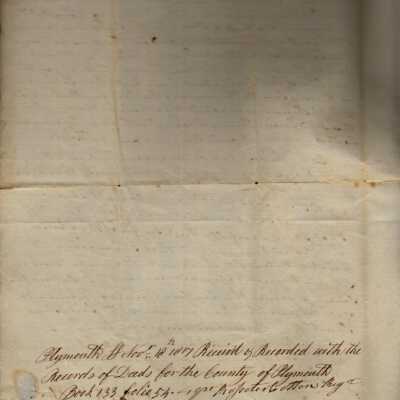 Plymouth Ss Novr. 18th 1817 Received & Recorded with the
Records of Deeds for the County of Plymouth
Book 133 folio 54. — Cotton Regr